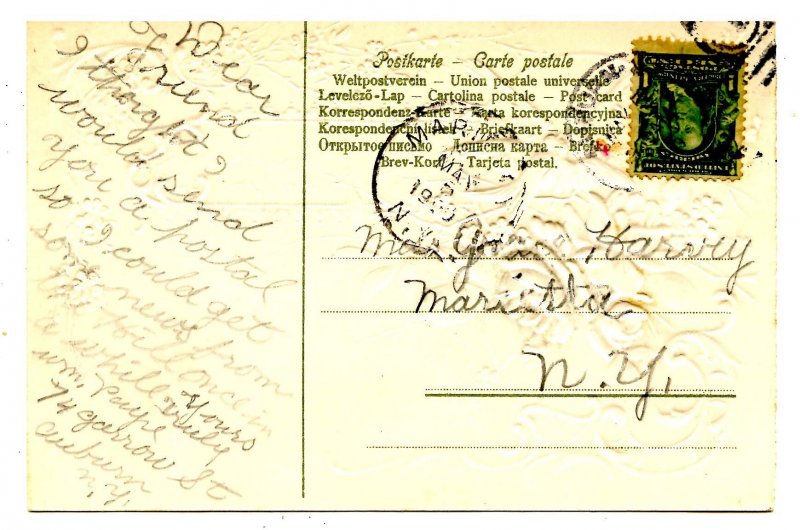 Dear
Friend
I thought I
would send
you a postal
so I could get
some news from
the Hill once in
a while
Yours
Truly
Wm Payne
74 Garrow St
Auburn
N.Y.
Postkarte – Carte postale
Weltpostverein – Union postale universelle
Levelező-Lap – Cartolina postale – Post card
Korrespondenz-Karte – Karta korespondencyjna
Korespondenční lístek – Briefkaart – Dopisnica
Открытое письмо – Дописна карта – Brefko
Brev-Kort – Tarjeta postal.
MAR
MAY
N.Y.
Harvey
Marietta
N.Y.